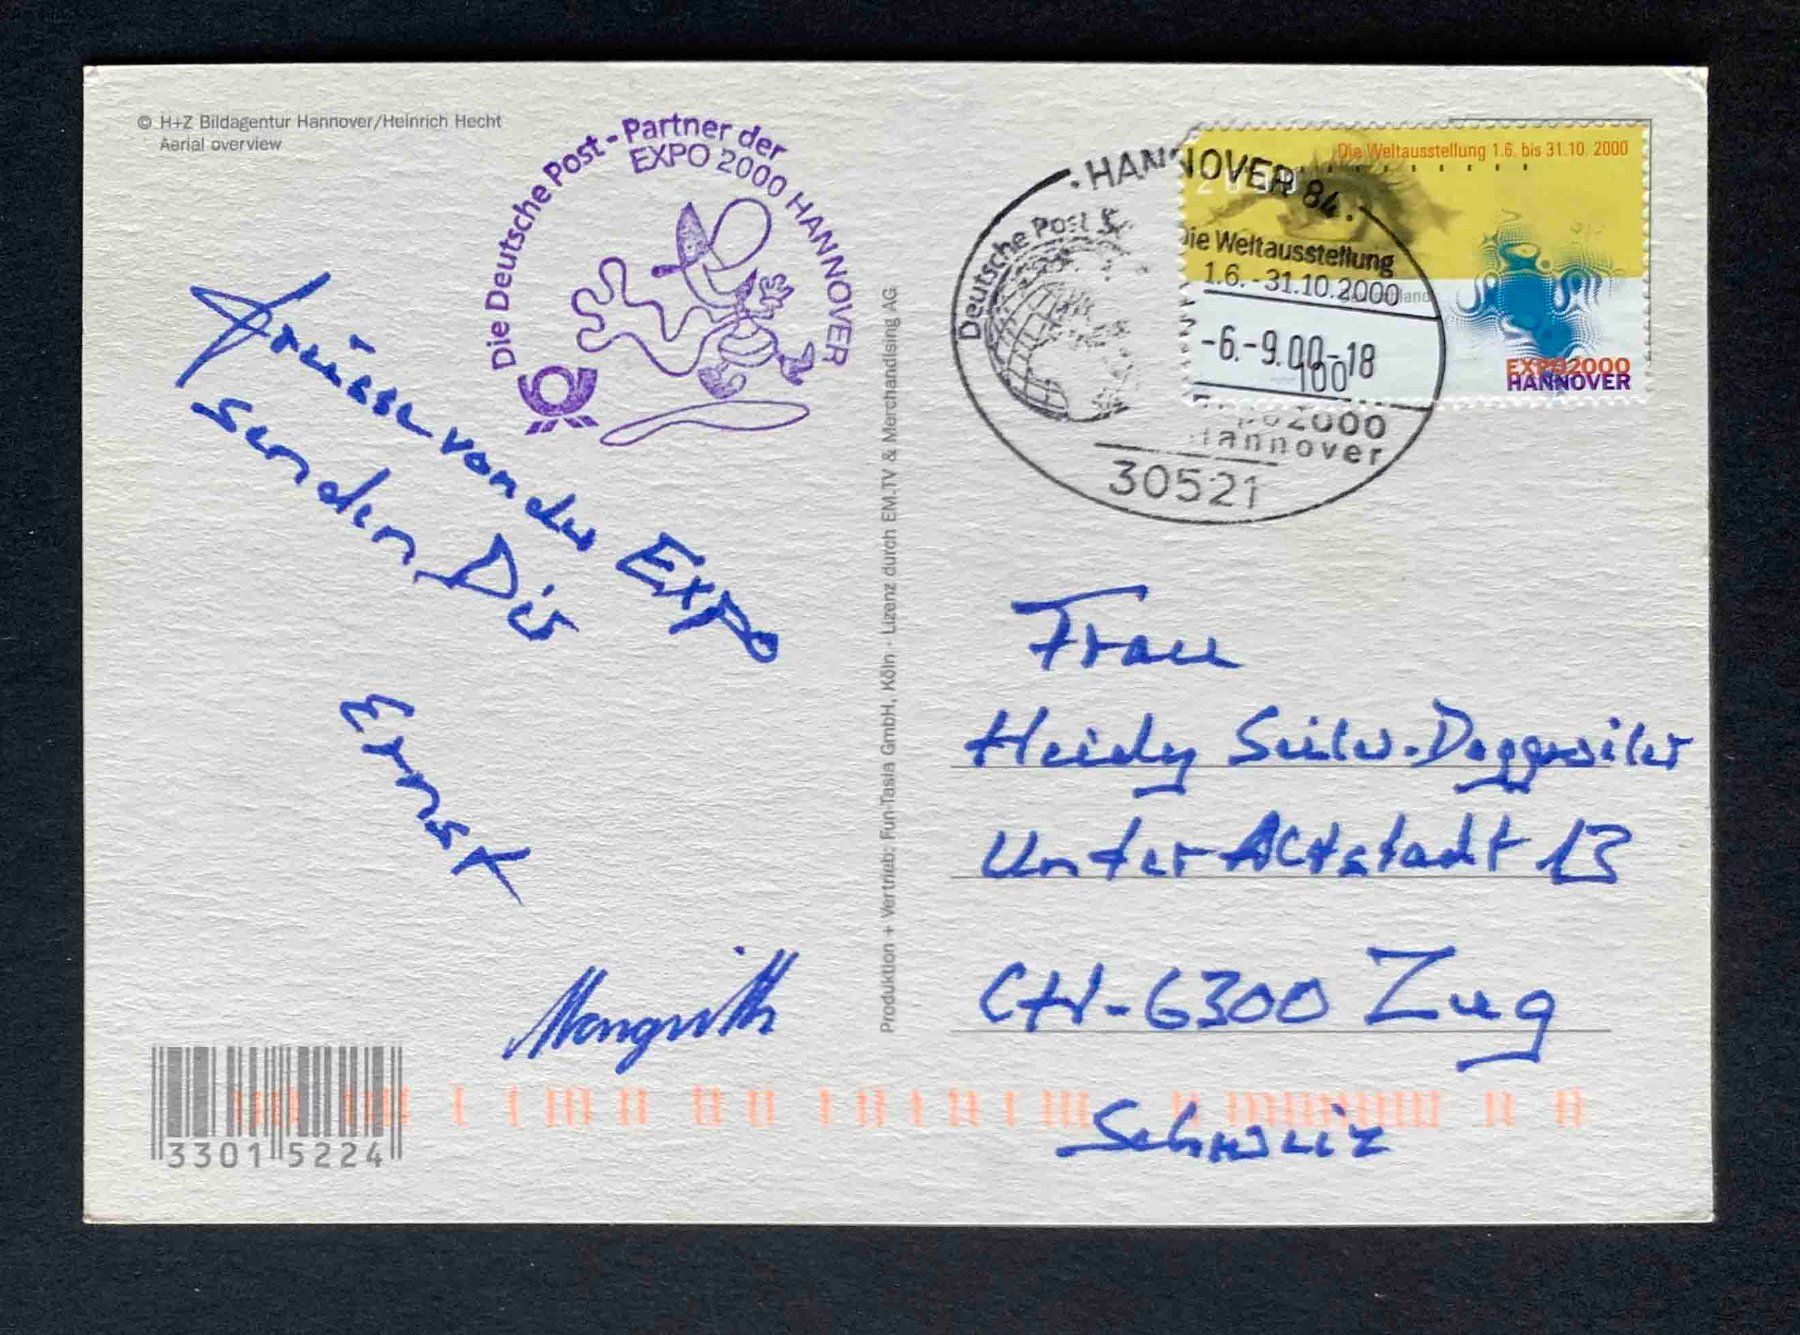 © H+Z Bildagentur Hannover/Heinrich Hecht
Aerial overview
Die Deutsche Post - Partner der
EXPO 2000 HANNOVER
Grüsse von der EXPO
senden Dir
Ernst
Margrith
3301 5224
Produktion + Vertrieb: Fun-Tasia GmbH, Köln · Lizenz durch EM.TV & Merchandising AG
· HANNOVER 84 ·
Deutsche Post
Die Weltausstellung
1.6. - 31.10.2000
-6.-9.00-18
Expo2000
Hannover
30521
Die Weltausstellung 1.6. bis 31.10. 2000
100
EXPO2000
HANNOVER
Frau
Heidy Seiler-Doggweiler
Unter Altstadt 13
CH-6300 Zug
Schweiz